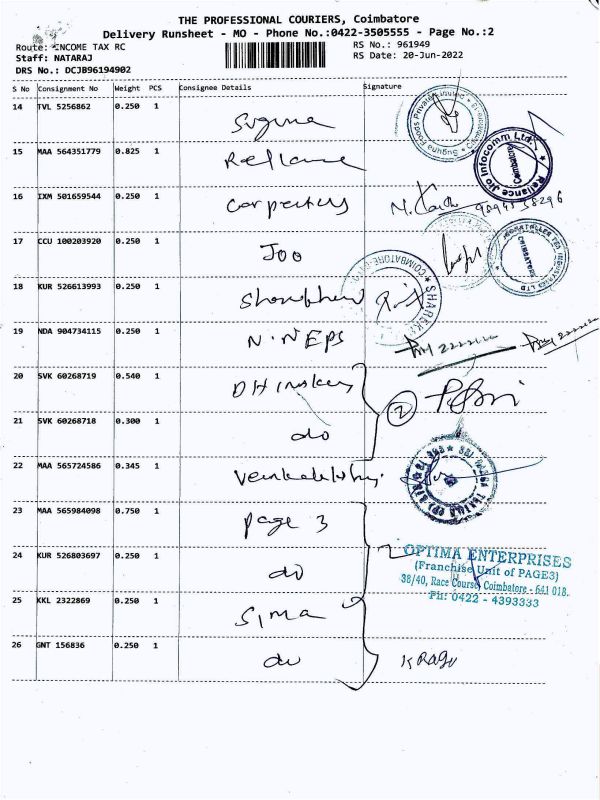 THE PROFESSIONAL COURIERS, Coimbatore
Delivery Runsheet - MO - Phone No.:0422-3505555 - Page No.:2
Route: INCOME TAX RC
RS No.: 961949
Staff: NATARAJ
RS Date: 20-Jun-2022
DRS No.: DCJB96194902
S No Consignment No Weight PCS Consignee Details Signature
14 TVL 5256862 0.250 1 Suguna
Suguna Foods Private Limited
15 MAA 564351779 0.825 1 Reliance
Reliance Jio Infocomm Ltd. Coimbatore
16 IXM 501659544 0.250 1 Carpenters
17 CCU 100203920 0.250 1 Joo
COIMBATORE
18 KUR 526613993 0.250 1
COIMBATORE
19 NDA 904734115 0.250 1 N.N EPS
20 SVK 60268719 0.540 1
2
21 SVK 60268718 0.300 1 do
22 MAA 565724586 0.345 1
23 MAA 565984098 0.750 1 Page 3
24 KUR 526803697 0.250 1 do
OPTIMA ENTERPRISES
(Franchise Unit of PAGE3)
38/40, Race Course, Coimbatore - 641 018.
Ph: 0422 - 4393333
25 KKL 2322869 0.250 1 Sima
26 GNT 156836 0.250 1 do K RAGU